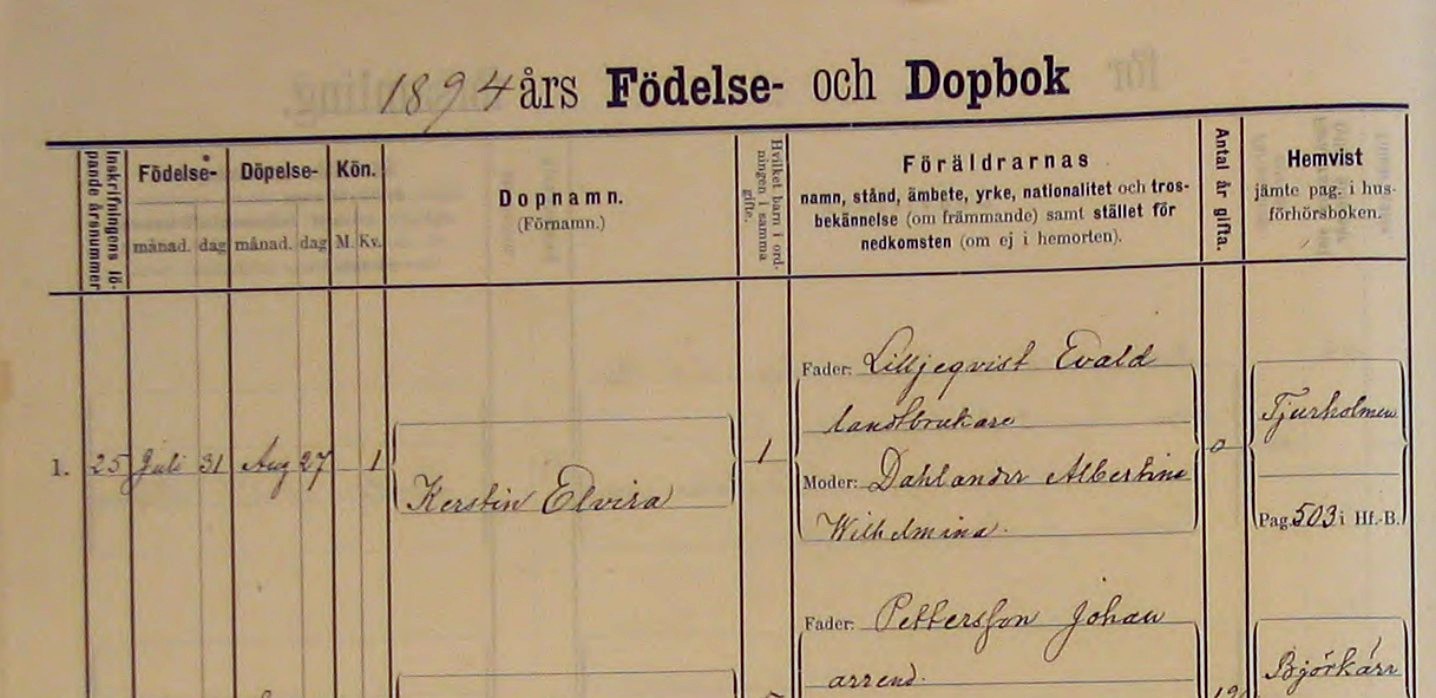 1894 års Födelse- och Dopbok
Inskrifningens lö-
pande årsnummer
Födelse-
månad. dag
Döpelse-
månad. dag
Kön.
M. Kv.
Dopnamn.
(Förnamn.)
Hvilket barn i ord-
ningen i samma
gifte.
Föräldrarnas
namn, stånd, ämbete, yrke, nationalitet och tros-
bekännelse (om främmande) samt stället för
nedkomsten (om ej i hemorten).
Antal år gifta.
Hemvist
jämte pag. i hus-
förhörsboken.
1. 25 Juli 31 Aug 27 1
Kerstin Elvira
1
Fader: Lilljeqvist Evald
landtbrukare
Moder: Dahlander Albertina
Wilhelmina.
0
Tjurholmen
Pag. 503 i Hf.-B.
Fader: Pettersson Johan
arrend.
Björkärr